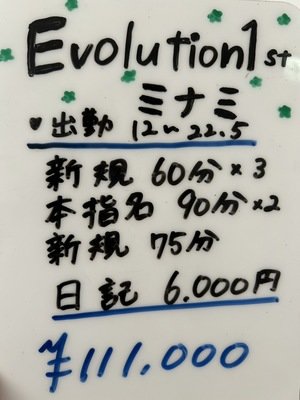 Evolution1st
ミナミ
♥出勤 12〜22.5
新規 60分×3
本指名 90分×2
新規 75分
日記 6.000円
¥111.000